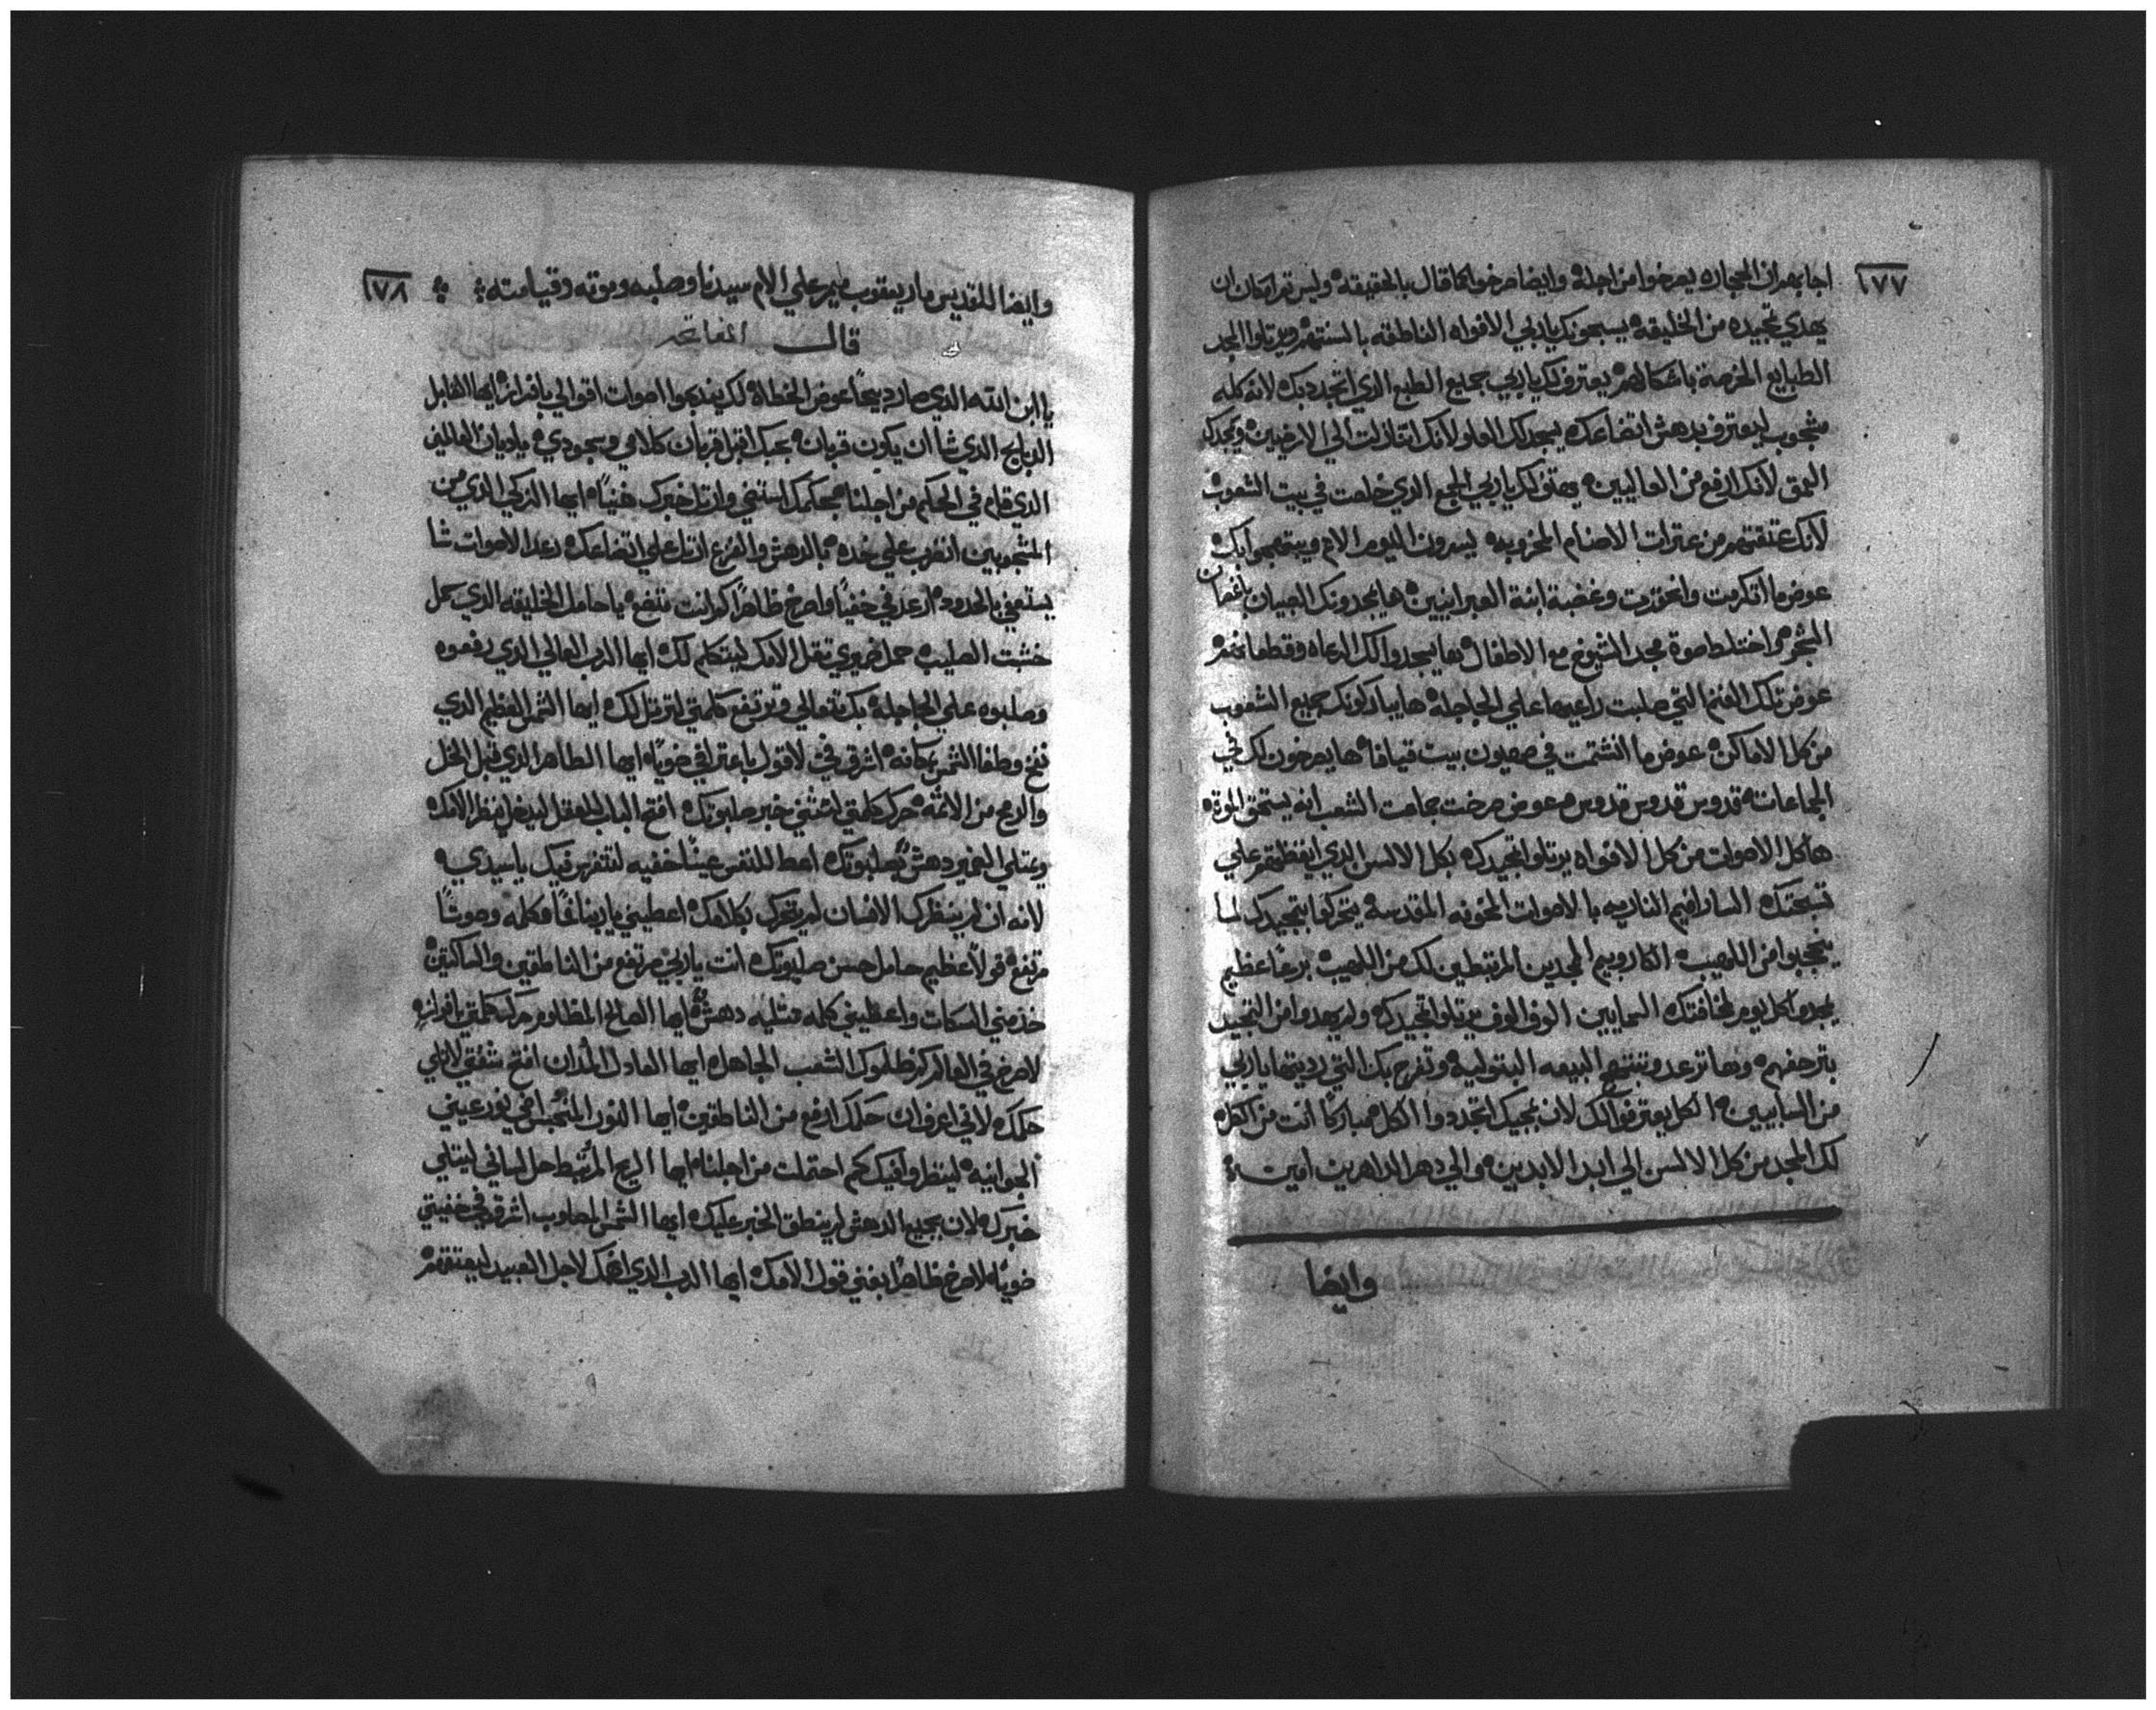 ١٧٧
اجابهم ان الحجاره يصرخوا من اجله وايضا صرخوا كما قال بالحقيقه وليس ثم امكان ان
يهدي تمجيده من الخليقه يسبحونك ياربي الافواه الناطقه بالسنتهم ويرتلوا المجد
الطبايع الخرصة باشكالهم يعترف لك ياربي جميع الطبع الذي اتجدد بك لانه كله
ليعترف بدهش اتضاعك يسجد لك العلو لانك اتنازلت الي الارضيين ويمجدك
العمق لانك ارفع من العاليين يهتف لك ياربي الجمع الذي خلصت في بيت الشعوب
لانك عتقتهم من عثرات الاصنام المخزيه يسرون اليوم الامم ويبتهجوا بك
عوض ما اتكرمت واتحقرت وغضبة ابنة العبرانيين ها يمجدونك الصبيان باغصان
الشجر واختلط صوة مجد الشيوخ مع الاطفال ها يسجدوا لك الرعاه وقطعانهم
عوض تلك الغنم التي صلبت راعيها علي الجاجله ها يباركونك جميع الشعوب
من كل الاماكن عوض ما انشتمت في صهيون بيت قيافا ها يصرخون لك في
الجماعات قدوس قدوس قدوس عوض صرخت جماعت الشعب انه يستحق الموة
ها كل الاصوات من كل الافواه يرتلوا تمجيدك بكل الالسن الذي ايقظتهم علي
تسبحتك السارافيم الناريه بالاصوات المقدسة يتحركوا بتمجيدك لما
من اللهيب الكاروبيم الممجدين المرتبطين لك من اللهيب برعبًا عظيم
كل يوم لمخافتك السمايين الوف الوف يرتلوا تمجيدك ولم يهدوا من التمجيد
وها ترعد وتبتهج البيعه البتوليه وتفرح بك التي رديتها ياربي
من السابيين الكل يعترفوا لك لان بمجيك اتجددوا الكل مباركًا انت من الكل
لك المجد من كل الالسن الي ابد الابدين والي دهر الداهرين امين
وايضا
١٧٨
وايضا للقديس مار يعقوب ميمر علي الام سيدنا وصلبه وموته وقيامته
قال
يا ابن الله الذي صار دبيحًا عوض الخطاة لك يندبحوا اصوات اقوالي بافراز ايها القابل
الدبايح الذي شا ان يكون قربان بحبك اقبل قربان كلامي وسجودي ياديان العالمين
الذي قام في الحكم من اجلنا بحكمك وارتل خبرك ايها الزكي الذي من
انضرب علي خده بالدهش والفزع ارتل علي اتضاعك رعد الاصوات شا
يستهزي بالحدود ارعد في خفيًا واصرخ ظاهرًا كم انت متضع يا حامل الخليقه الذي حمل
خشبت الصليب حمل ضميري ثقل الامك ليتكلم لك ايها الرب العالي الذي رفعوه
وصلبوه علي الجاجلة بك تتعالي وترتفع كلمتي لترتل لك ايها الشمس العظيم الذي
وطفا الشمس مكانه اشرق في لاقول باعتراف ضويًا ايها الطاهر الذي قبل الخل
والدبح من الاثمه حرك كلمتي خبر صلبوتك افتح الباب للعقل ليدخل ينظر الامك
ويمتلي الضمير دهش بصلبوتك اعط للنفس عينًا خفيه لتتفرس فيك ياسيدي
لانه ان لم ينظرك الانسان لم يتحرك بكلامك اعطيني ياربنا فمًا وكلمه وصوتًا
مرتفع قولًا عظيم حامل حسن صلبوتك انت ياربي مرتفع من الناطقين والساكتين
خذ مني السكات واعطيني كلمه ممتليه دهش ايها الصالح المظلوم حرك كلمتي بافراز
لاصرخ في العالم كم ظلموك الشعب الجاهل ايها العادل المدان افتح شفتي لارتل
حكمك لاني اعرف ان حكمك ارفع من الناطقين ايها النور في نور عيني
الجوانيه لينظروا فيك كم احتملت من اجلنا ايها الريح المرتبط حل لساني ليمتلي
خبرك لان بجميع الدهش لم ينطق الخبر عليك ايها الشمس المصلوب اشرق في خفيتي
ضويًا لاصرخ ظاهرًا بغني قول الامك ايها الرب الذي لاجل العبيد ليعتقهم